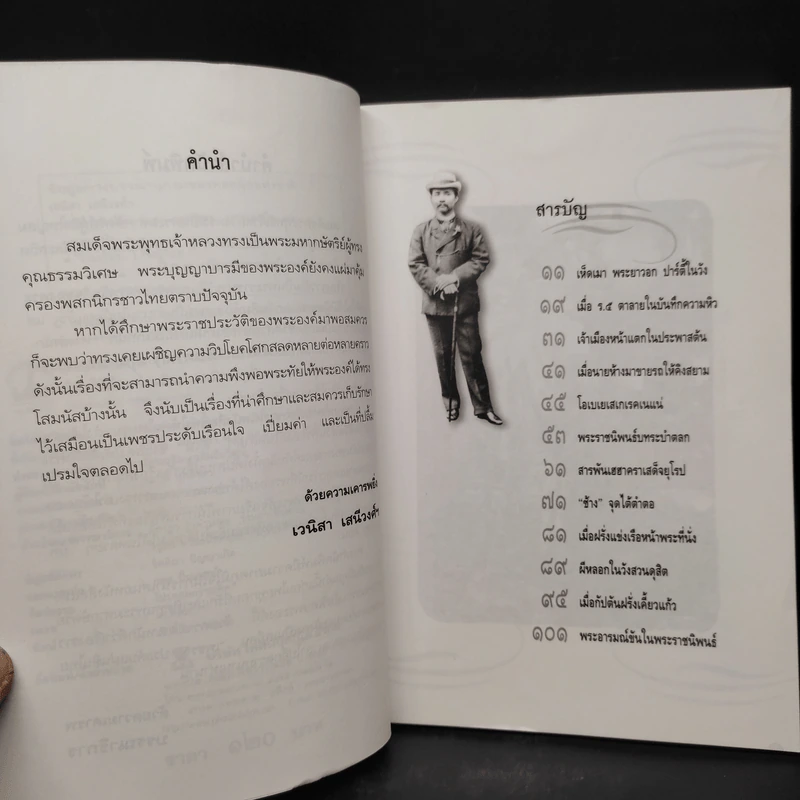 คำนำ
สมเด็จพระพุทธเจ้าหลวงทรงเป็นพระมหากษัตริย์ผู้ทรง
คุณธรรมวิเศษ พระบุญญาบารมีของพระองค์ยังคงแผ่มาคุ้ม
ครองพสกนิกรชาวไทยตราบปัจจุบัน
หากได้ศึกษาพระราชประวัติของพระองค์มาพอสมควร
ก็จะพบว่าทรงเคยเผชิญความวิปโยคโศกสลดหลายต่อหลายคราว
ดังนั้นเรื่องที่จะสามารถนำความพึงพอพระทัยให้พระองค์ได้ทรง
โสมนัสบ้างนั้น จึงนับเป็นเรื่องที่น่าศึกษาและสมควรเก็บรักษา
ไว้เสมือนเป็นเพชรประดับเรือนใจ เปี่ยมค่า และเป็นที่ปลื้ม
เปรมใจตลอดไป
ด้วยความเคารพยิ่ง
เวนิสา เสนีวงศ์ฯ
สารบัญ
๑๑ เห็ดเมา พระยาวอก ปาร์ตี้ในวัง
๑๙ เมื่อ ร.๕ ตาลายในบันทึกความหิว
๓๑ เจ้าเมืองหน้าแตกในประพาสต้น
๔๑ เมื่อนายห้างมาขายรถให้คิงสยาม
๔๕ โอเบเยเสเกเรคเนแน่
๕๓ พระราชนิพนธ์บทระบำตลก
๖๑ สารพันเฮฮาคราเสด็จยุโรป
๗๑ “ช้าง” จุดไต้ตำตอ
๘๑ เมื่อฝรั่งแข่งเรือหน้าพระที่นั่ง
๘๙ ผีหลอกในวังสวนดุสิต
๙๕ เมื่อกัปตันฝรั่งเคี้ยวแก้ว
๑๐๑ พระอารมณ์ขันในพระราชนิพนธ์